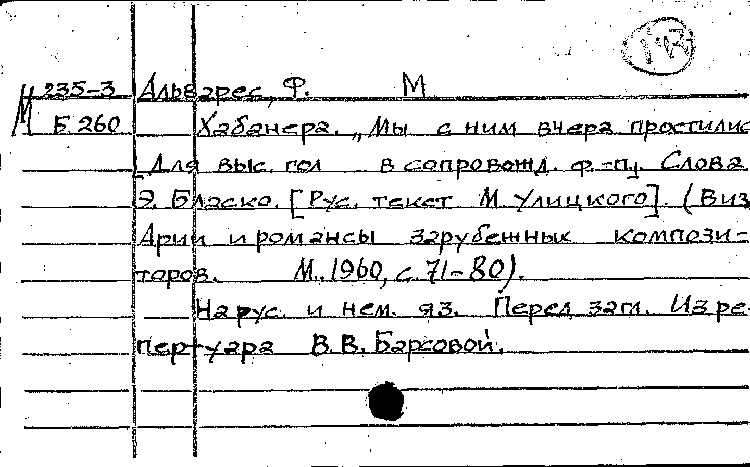 М 235-3 Альварес, Ф. М
Б 260 Хабанера. „Мы с ним вчера простилис
[Для выс. гол в сопровожд. ф.-п.] Слова
Э. Бласко. [Рус. текст М. Улицкого]. (В из
Арии и романсы зарубежных компози-
торов. М., 1960, с. 71-80).
На рус. и нем. яз. Перед загл. Из ре-
пертуара В. В. Барсовой.